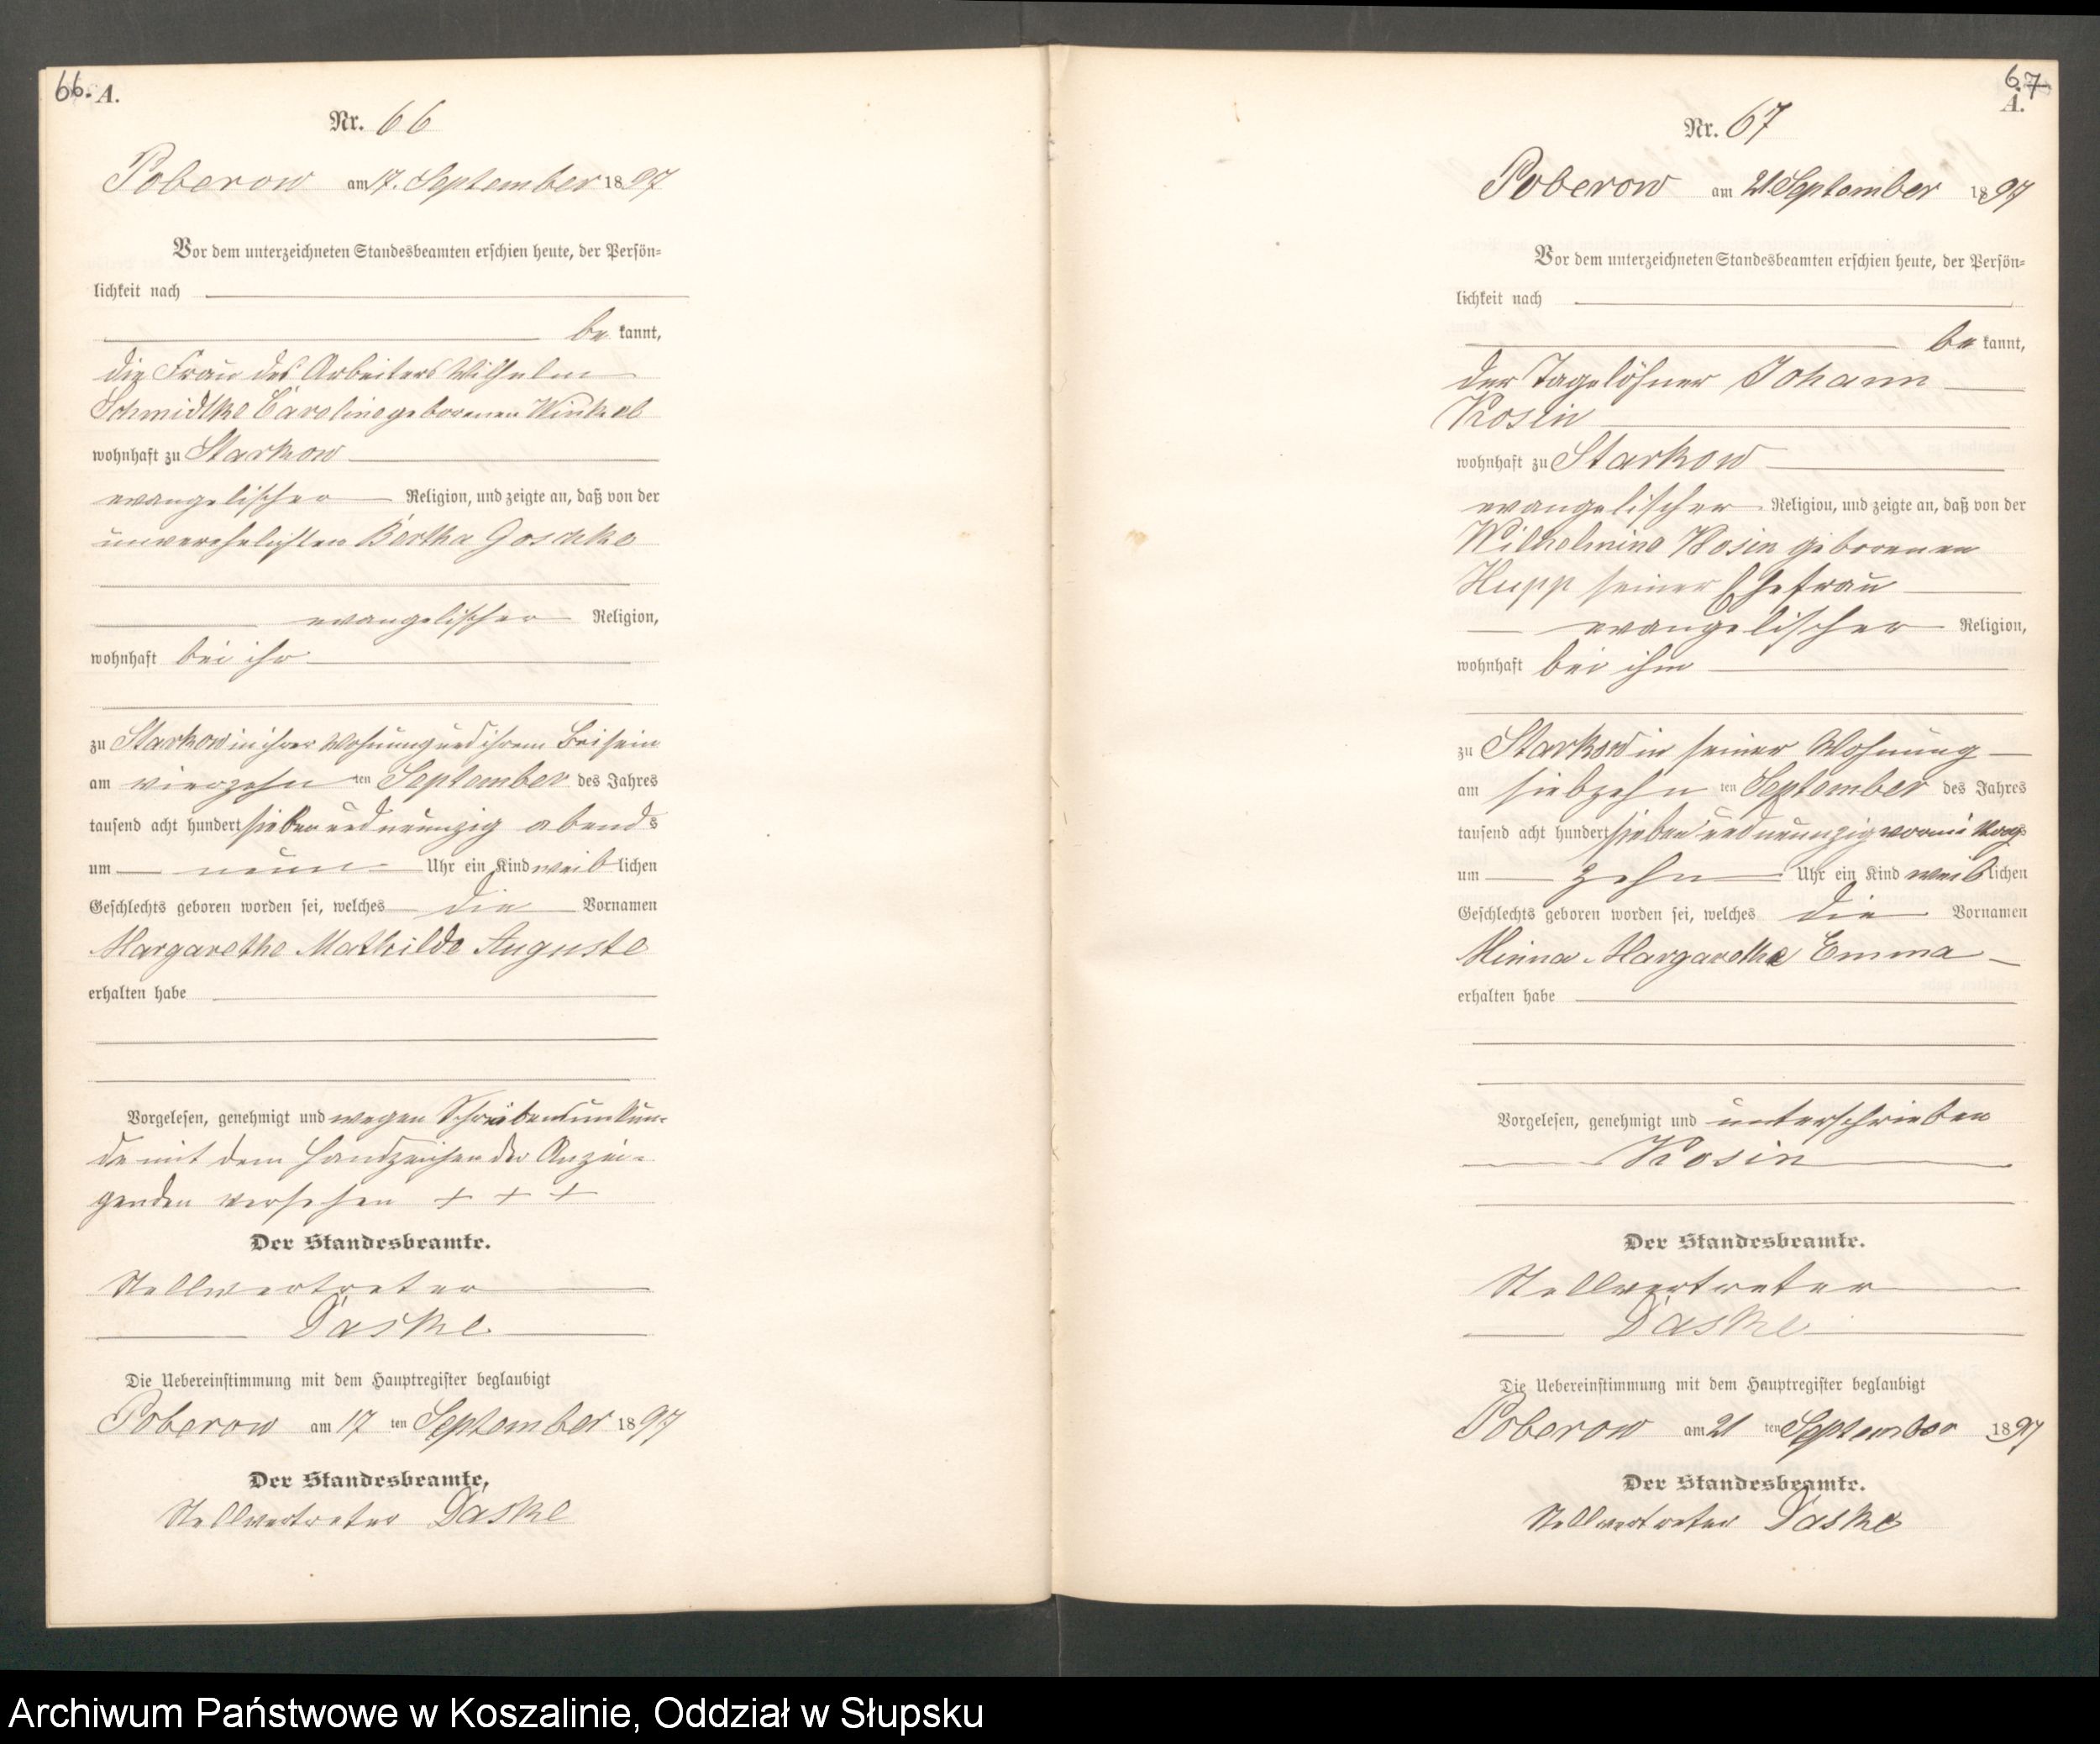 66. A.
Nr. 66
Poberow am 17. September 1897
Vor dem unterzeichneten Standesbeamten erschien heute, der Persön=
lichkeit nach
be kannt,
die Frau des Arbeiters Wilhelm
Schmidtke Caroline geborenen Winkel
wohnhaft zu Starkow
evangelischer Religion, und zeigte an, daß von der
unverehelichten Bertha Goschke
evangelischer Religion,
wohnhaft bei ihr
zu Starkow in ihrer Wohnung und ihrem Beisein
am vierzehn ten September des Jahres
tausend acht hundert sieben und neunzig abends
um neun Uhr ein Kind weib lichen
Geschlechts geboren worden sei, welches die Vornamen
Margarethe Mathilde Auguste
erhalten habe
Vorgelesen, genehmigt und wegen Schreibensunkun=
de mit dem Handzeichen der Anzei=
genden versehen + + +
Der Standesbeamte.
Stellvertreter
Daske
Die Uebereinstimmung mit dem Hauptregister beglaubigt
Poberow am 17 ten September 1897
Der Standesbeamte,
Stellvertreter Daske
67
A.
Nr. 67
Poberow am 21. September 1897
Vor dem unterzeichneten Standesbeamten erschien heute, der Persön=
lichkeit nach
be kannt,
der Tagelöhner Johann
Kosin
wohnhaft zu Starkow
evangelischer Religion, und zeigte an, daß von der
Wilhelmine Kosin geborenen
Hupp seiner Ehefrau
evangelischer Religion,
wohnhaft bei ihm
zu Starkow in seiner Wohnung
am siebzehn ten September des Jahres
tausend acht hundert sieben und neunzig vormittags
um zehn Uhr ein Kind weiblichen
Geschlechts geboren worden sei, welches die Vornamen
Minna Margarethe Emma
erhalten habe
Vorgelesen, genehmigt und unterschrieben
Kosin
Der Standesbeamte.
Stellvertreter
Daske
Die Uebereinstimmung mit dem Hauptregister beglaubigt
Poberow am 21 ten September 1897
Der Standesbeamte.
Stellvertreter Daske
Archiwum Państwowe w Koszalinie, Oddział w Słupsku